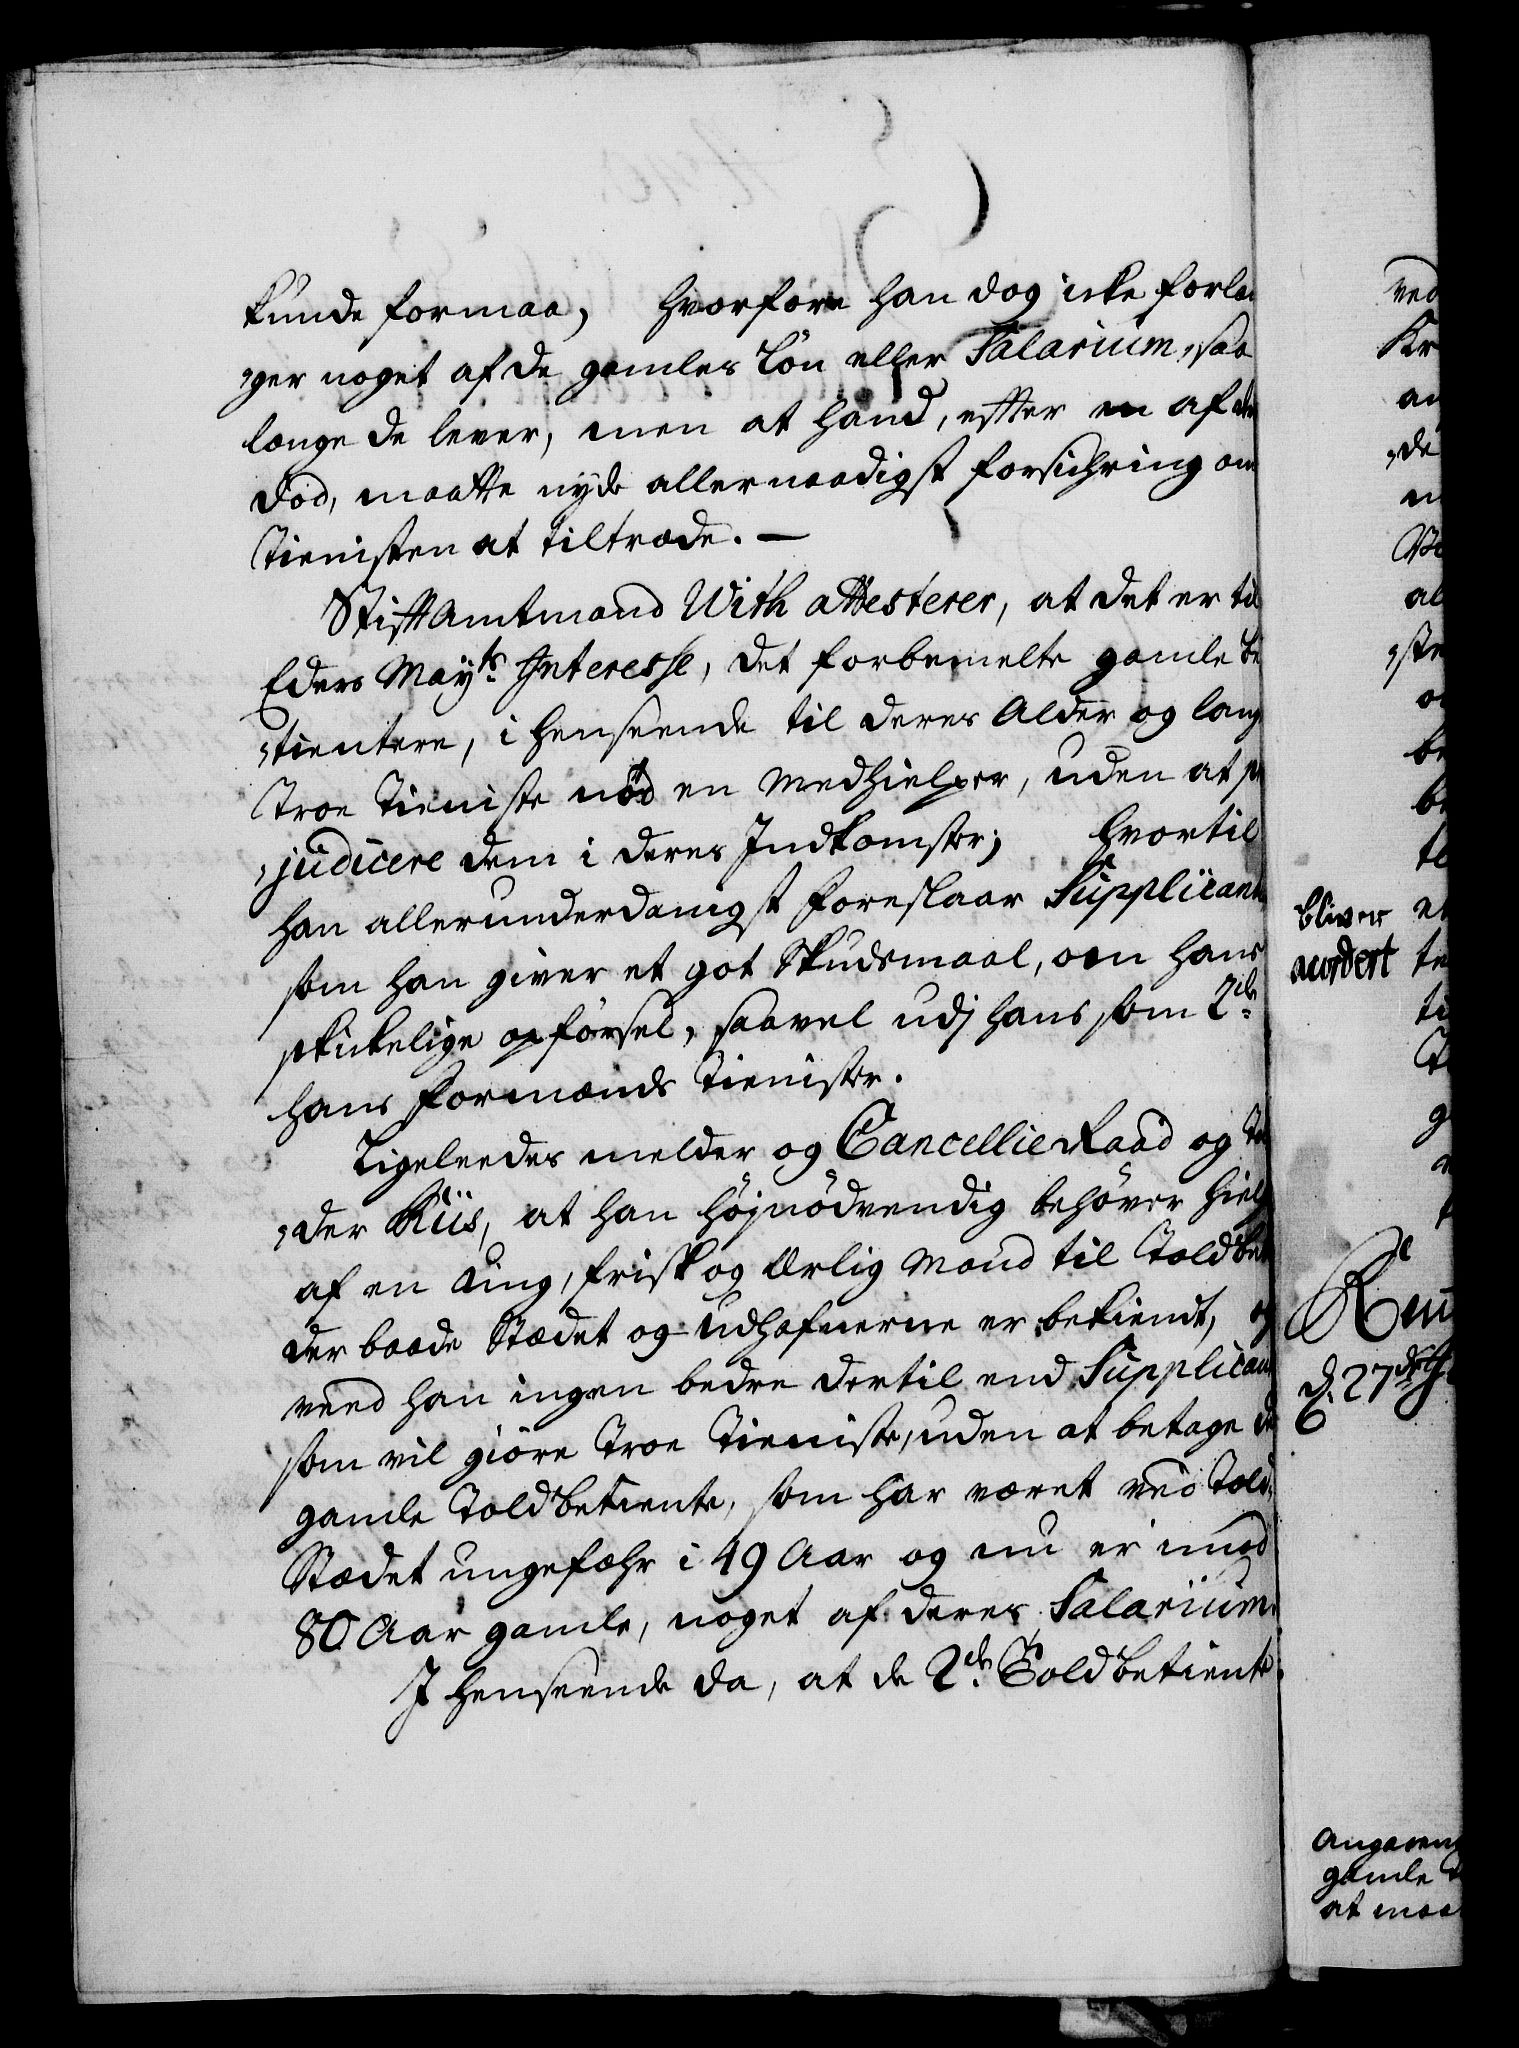 kunde formaa, hvorfore han dog icke forlan
„ger noget af de gamles Løn eller Salarium, saa
længe de lever, men at hand, efter en af de
død, maatte nyde allernaadigst forsichring om
Tienisten at tiltræde. —
Stiftamtmand With attesterer, at det er til
Eders Mayts Interesse, det forbemelte gamle be
„tientere, i henseende til deres Alder og lang
Troe Tieniste nød en Medhielper, uden at præ
„judicere dem i deres Indkomster; hvortil
han allerunderdanigst foreslaar Supplicant
som han giver et got Skudsmaal, om hans
skickelige opførsel, saavel udj hans som 2de
hans Formænds Tienister.
Ligeleedes melder og Cancellie Raad og Tol
„der Riis, at han højnødvendig behøver hielp
af en ung, frisk og Ærlig Mand til Toldbet
der baade Stædet og Udhafnerne er bekiendt, og
veed han ingen bedre dertil end Supplicant
som vil giøre Troe Tieniste, uden at betage de
gamle Toldbetiente, som har været ved Told„
Stædet ungefæhr i 49 Aar og nu er imod
80 Aar gamle, noget af deres Salarium.
J henseende da, at de 2de Toldbetiente
ved
Kr
an
„de
al
„stre
be
be
bliver
acordert
te
ti
Ren
d. 27de
Angaaend
gamle
at maa